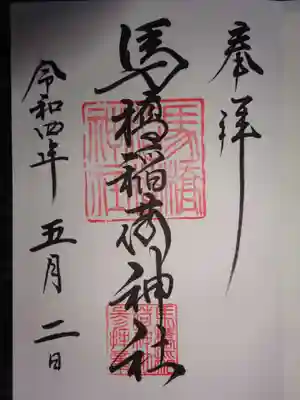 奉拝
馬橋稲荷神社
令和四年 五月 二日